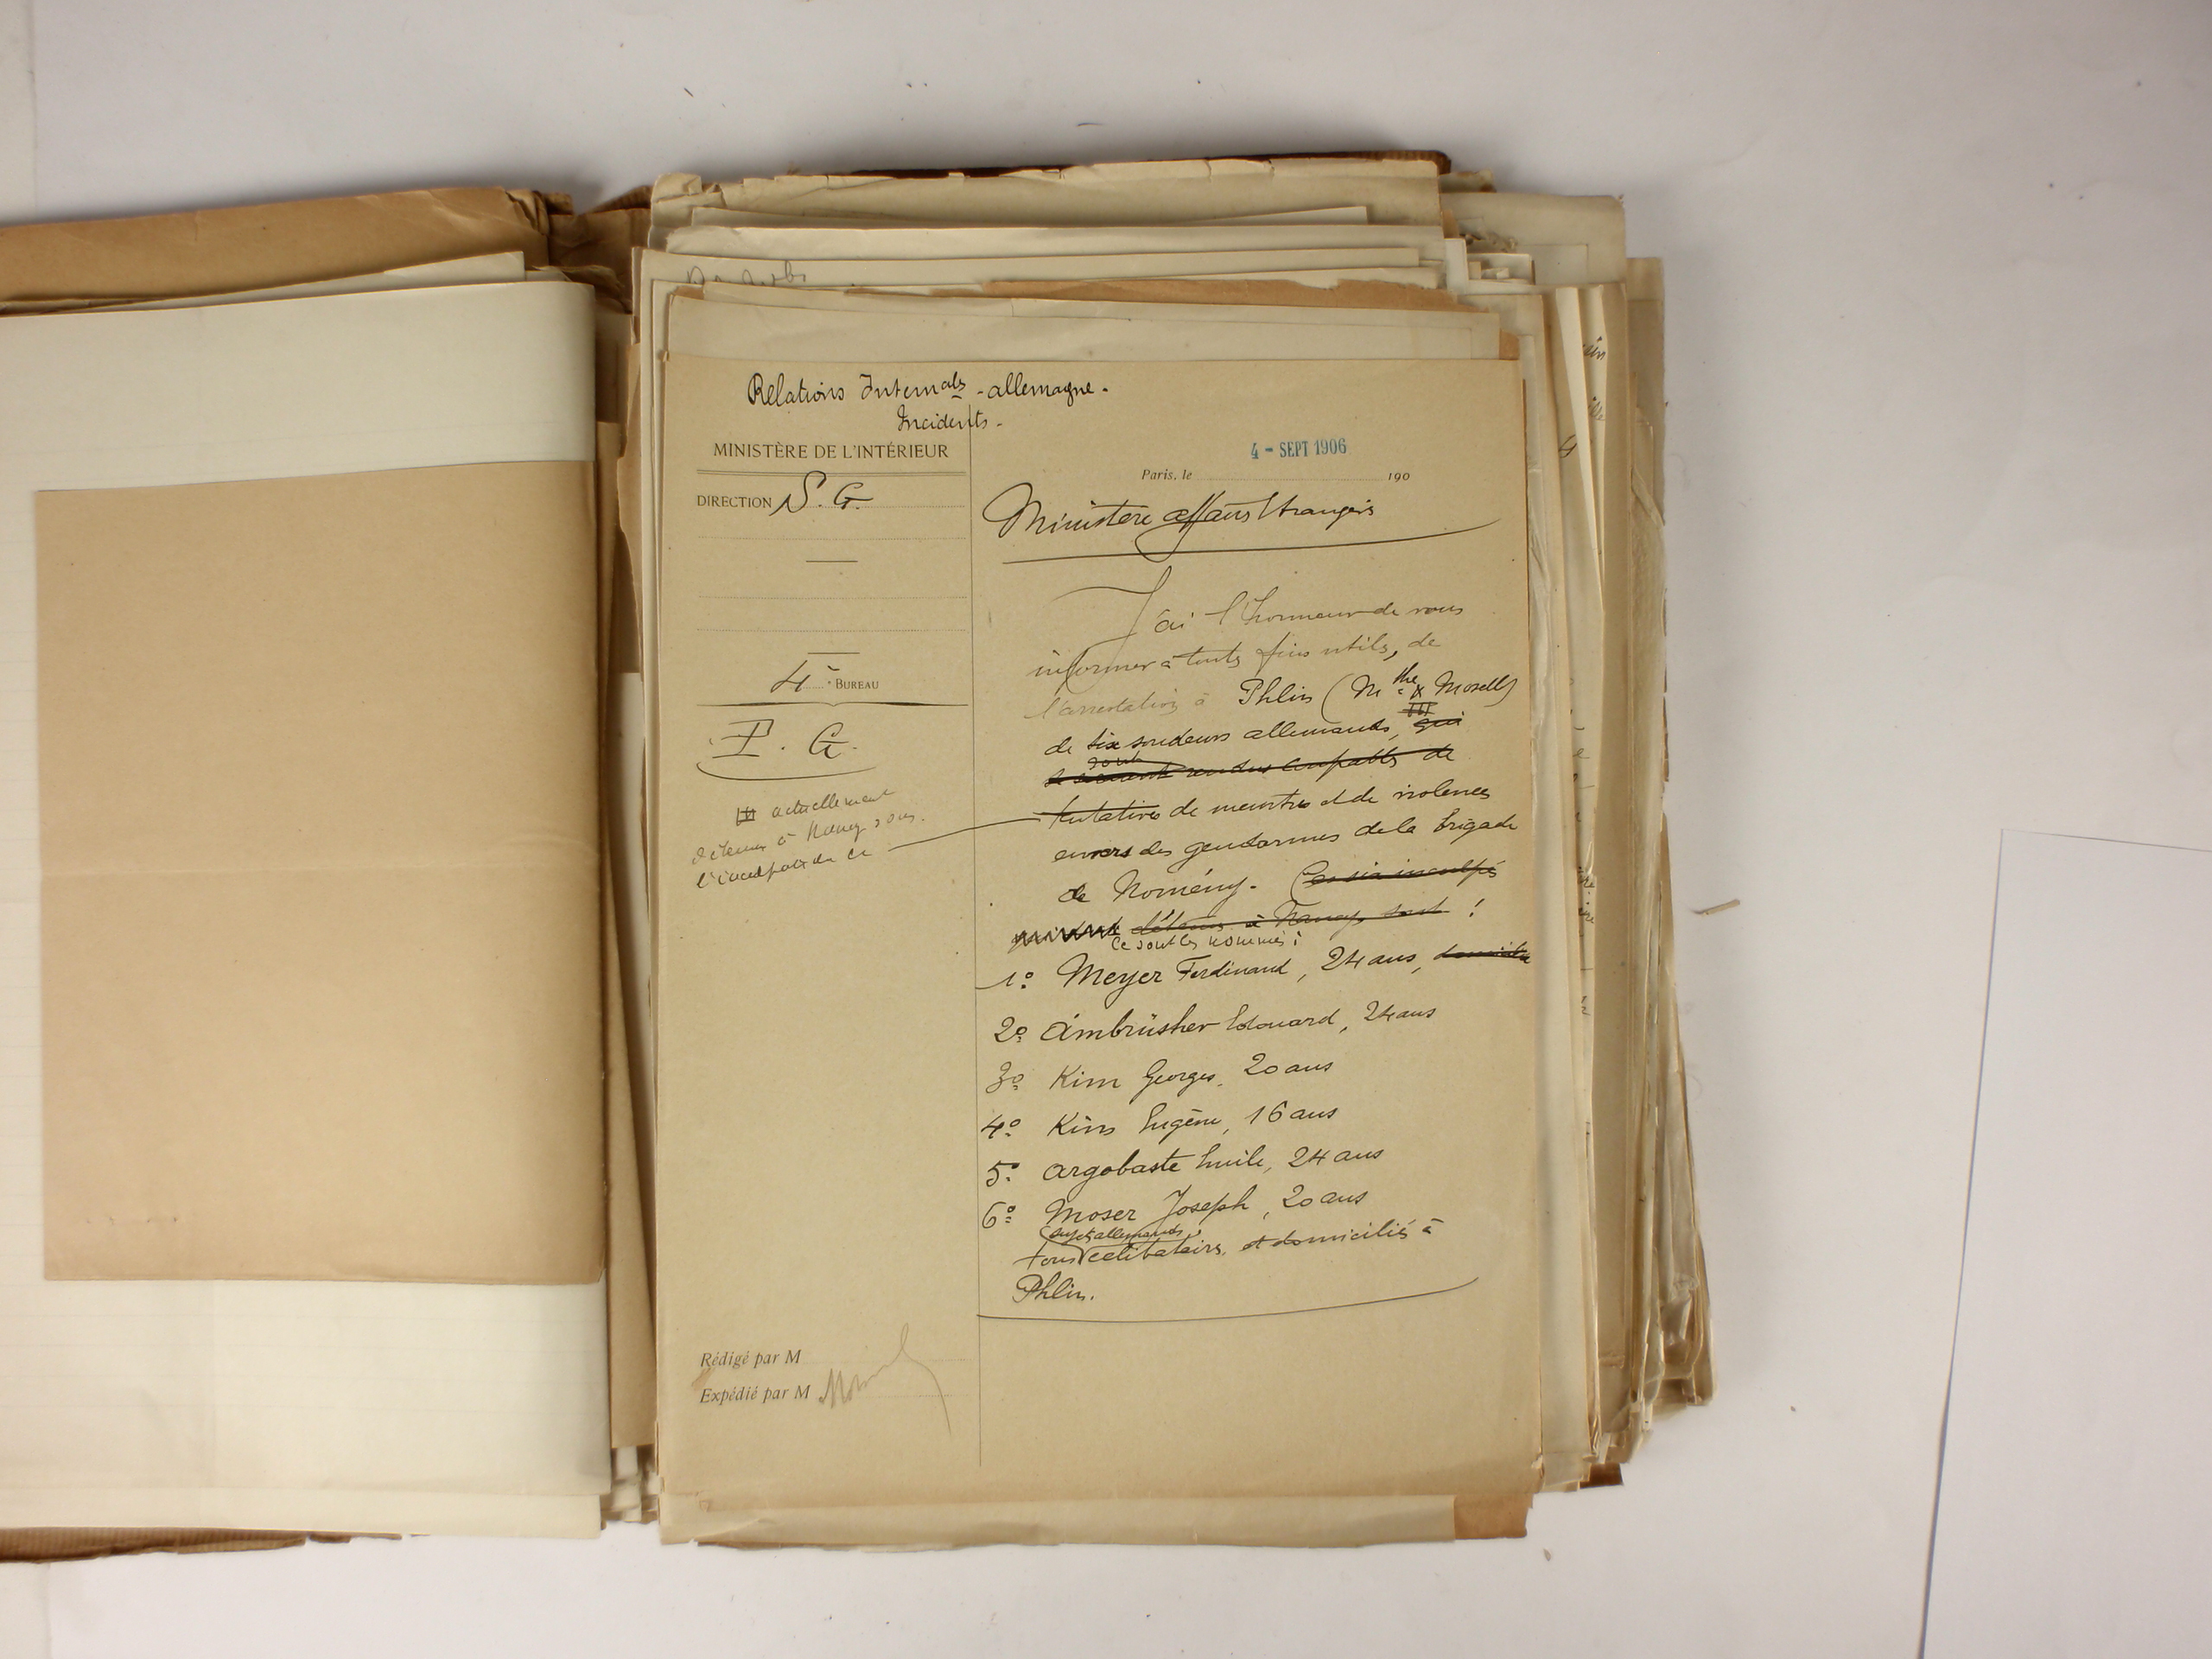 Relations Internales - allemagne -
Incidents -
MINISTÈRE DE L'INTÉRIEUR
DIRECTION S. G.
4e BUREAU
P. G.
actuellement
détenus à Nancy sous
l'inculpation de
Rédigé par M
Expédié par M
4 - SEPT 1906
Paris, le 190
Ministère affaires Etrangères
J'ai l'honneur de vous
informer à toutes fins utiles, de
l'arrestation à Phlin (Mthe & Moselle)
de six soudeurs allemands, qui
sont
se seraient rendus coupables de
tentatives de meurtres et de violences
envers des gendarmes de la brigade
de Nomény. Ces six inculpés
détenus à Nancy sont :
Ce sont les nommés :
1o Meyer Ferdinand, 24 ans,
2o Ambrüsher Edouard, 24 ans
3o Kim Georges, 20 ans
4o Kim Eugène, 16 ans
5o Argobaste Emile, 24 ans
6o Moser Joseph, 20 ans
sujets allemands,
tous célibataires, et domiciliés à
Phlin.